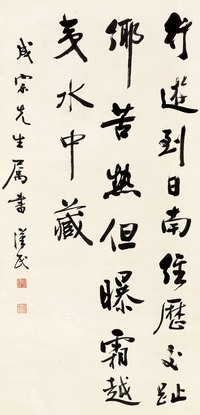 行游到日南經歷交趾
鄉苦熱但曝霜越
夷水中藏
成宗先生屬書 漢民